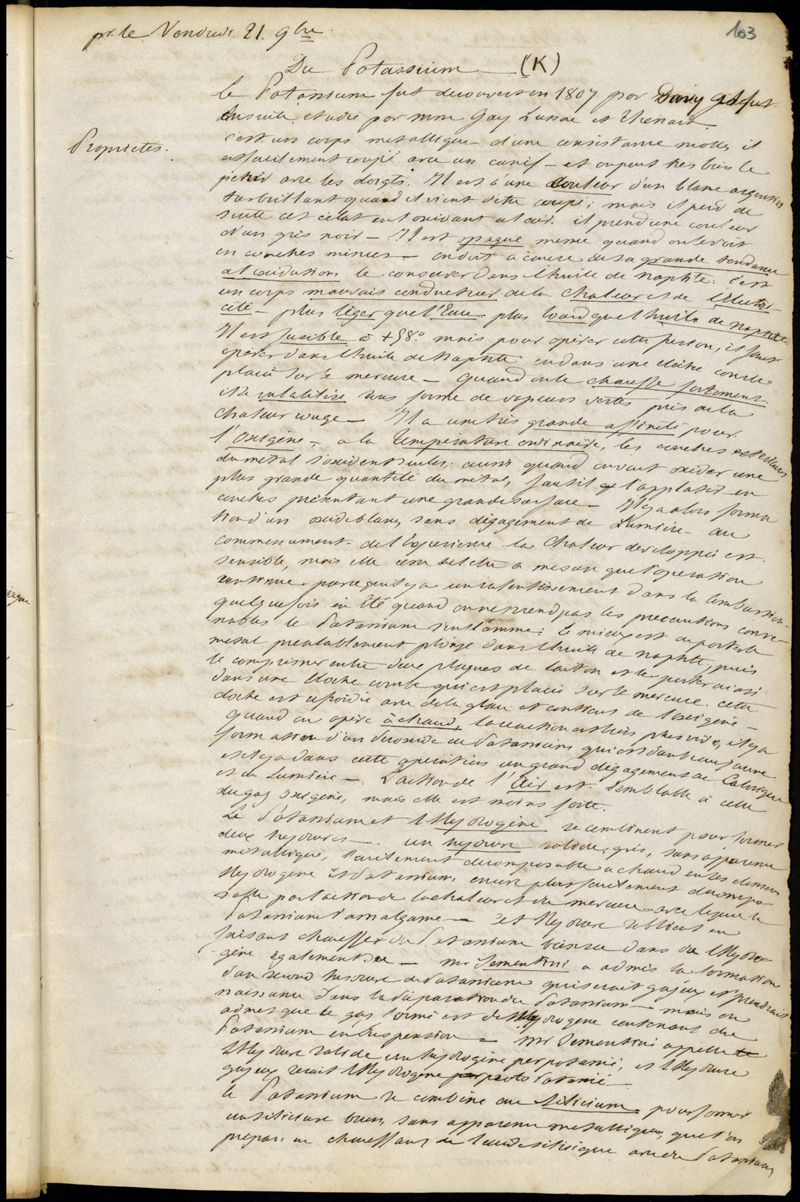 103
pr. le Vendredi 21. 9bre
Du Potassium (K)
Le Potassium fut decouvert en 1807 par Davy et fut
ensuite etudié par mm Gay Lussac et Thenard.
Propriétés.
C'est un corps metallique d'une consistance molle, il
est facilement coupé avec un canif – et on peut tres bien le
pétrir avec les doigts. Il est d'une couleur d'un blanc argentin
tres brillant quand il vient d'etre coupé; mais il perd de
suite cet eclat en s'oxidant a l'air. il prend une couleur
d'un gris noir – Il est opaque meme quand on le voit
en couches minces – on doit a cause de sa grande tendance
a l'oxidation le conserver dans l'huile de naphte. C'est
un corps mauvais conducteur de la chaleur et de l'Electri-
cité – plus léger que l'Eau plus lourd que l'huile de naphte
Il est fusible à +58.° mais pour opérer cette fusion, il faut
opérer dans l'huile de naphte ou dans une cloche courbe
placée sur le mercure – quand on le chauffe fortement
il se volatilise sous forme de vapeurs vertes près de la
chaleur rouge – Il a une très grande affinité pour
l'Oxigène – a la Température ordinaire, les couches exterieures
du metal s'oxident seules; aussi quand on veut oxider une
plus grande quantité du metal, faut il l'applatir en
couches présentant une grande surface – Il y a alors forma
tion d'un oxide blanc, sans dégagement de Lumière – au
commencement de l'experience la chaleur developpée est
sensible, mais elle cesse de l'etre a mesure que l'operation
continue parcequ'il y a un ralentissement dans la Combustion –
quelquefois en Eté quand on ne prend pas les precautions conve-
nables le Potassium s'enflamme: le mieux est de porter le
metal prealablement plongé dans l'huile de naphte, puis
le comprimer entre deux plaques de laiton et les porter ainsi
dans une cloche courbe qui est placée sur le mercure. cette
cloche est refroidie avec de la glace et contient de l'oxigène –
quand on opère à chaud, la reaction est très vive, il y a
formation d'un Peroxide de Potassium qui est d'un beau jaune
et il y a dans cette operation un grand dégagement de Calorique
et de Lumière – L'action de l'Air est semblable à celle
du gaz oxigène, mais elle est moins forte.
Le Potassium et l'Hydrogène se combinent pour former
deux hydrures – un hydrure solide, gris, sans apparence
metallique, facilement decomposable a chaud en ses elemens
Hydrogene et Potassium, encore plus facilement decompo
sable par l'action de la chaleur et du mercure avec lequel le
Potassium s'amalgame – cet Hydrure s'obtient en
faisant chauffer du Potassium bien sec dans de l'Hydro
gène également sec – mr Sementini a admis la formation
d'un second hydrure de Potassium qui serait gazeux et prendrait
naissance dans la préparation du Potassium – mais on
admet que le gaz formé est de l'Hydrogene contenant du
Potassium en suspension – mr Sementini appelle
l'Hydrure solide un Hydrogène perpotassié, et l'Hydrure
gazeux serait l'Hydrogène potassié
Le Potassium se combine au Silicium pour former
un siliciure brun, sans apparence metallique, que l'on
prépare en chauffant de l'acide silicique avec du Potassium